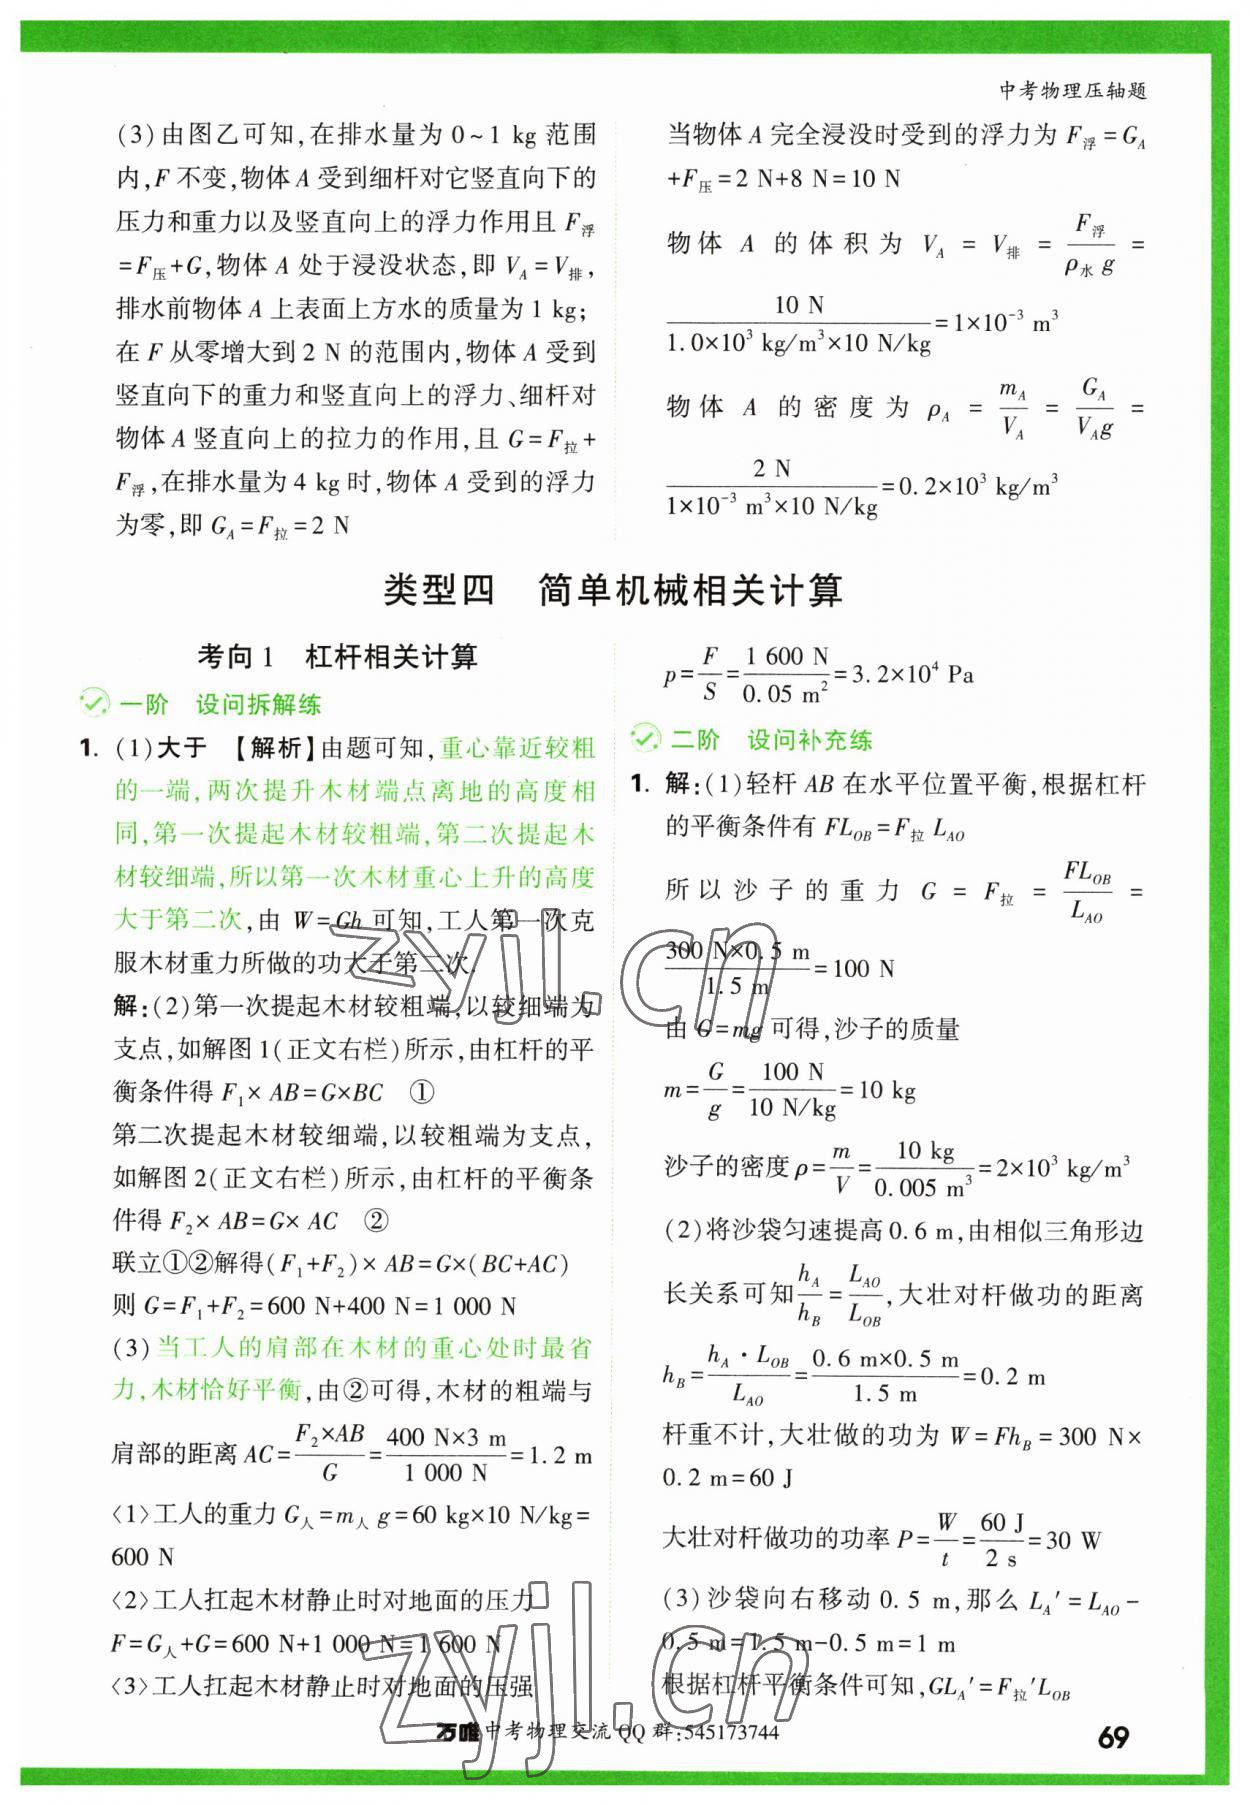 中考物理压轴题
(3)由图乙可知,在排水量为 0~1 kg 范围
内,F 不变,物体 A 受到细杆对它竖直向下的
压力和重力以及竖直向上的浮力作用且 F浮
=F压+G,物体 A 处于浸没状态,即 V_A=V排,
排水前物体 A 上表面上方水的质量为 1 kg;
在 F 从零增大到 2 N 的范围内,物体 A 受到
竖直向下的重力和竖直向上的浮力、细杆对
物体 A 竖直向上的拉力的作用,且 G=F拉+
F浮,在排水量为 4 kg 时,物体 A 受到的浮力
为零,即 G_A=F拉=2 N
当物体 A 完全浸没时受到的浮力为 F浮=G_A
+F压=2 N+8 N=10 N
物体 A 的体积为 V_A = V排 = F浮/(ρ水 g) =
10 N/(1.0×10³ kg/m³×10 N/kg)=1×10⁻³ m³
物体 A 的密度为 ρ_A = m_A/V_A = G_A/(V_A g) =
2 N/(1×10⁻³ m³×10 N/kg)=0.2×10³ kg/m³
类型四 简单机械相关计算
考向 1 杠杆相关计算
一阶 设问拆解练
1. (1)大于 【解析】由题可知,重心靠近较粗
的一端,两次提升木材端点离地的高度相
同,第一次提起木材较粗端,第二次提起木
材较细端,所以第一次木材重心上升的高度
大于第二次,由 W=Gh 可知,工人第一次克
服木材重力所做的功大于第二次.
解:(2)第一次提起木材较粗端,以较细端为
支点,如解图 1(正文右栏)所示,由杠杆的平
衡条件得 F₁× AB=G×BC ①
第二次提起木材较细端,以较粗端为支点,
如解图 2(正文右栏)所示,由杠杆的平衡条
件得 F₂× AB=G× AC ②
联立①②解得(F₁+F₂)× AB=G×(BC+AC)
则 G=F₁+F₂=600 N+400 N=1 000 N
(3)当工人的肩部在木材的重心处时最省
力,木材恰好平衡,由②可得,木材的粗端与
肩部的距离 AC=F₂×AB/G=400 N×3 m/1 000 N=1.2 m
〈1〉工人的重力 G人=m人 g=60 kg×10 N/kg=
600 N
〈2〉工人扛起木材静止时对地面的压力
F=G人+G=600 N+1 000 N=1 600 N
〈3〉工人扛起木材静止时对地面的压强
p=F/S=1 600 N/0.05 m²=3.2×10⁴ Pa
二阶 设问补充练
1. 解:(1)轻杆 AB 在水平位置平衡,根据杠杆
的平衡条件有 FL_OB=F拉 L_AO
所以沙子的重力 G = F拉 = FL_OB/L_AO =
300 N×0.5 m/1.5 m=100 N
由 G=mg 可得,沙子的质量
m=G/g=100 N/10 N/kg=10 kg
沙子的密度 ρ=m/V=10 kg/0.005 m³=2×10³ kg/m³
(2)将沙袋匀速提高 0.6 m,由相似三角形边
长关系可知h_A/h_B=L_AO/L_OB,大壮对杆做功的距离
h_B=h_A·L_OB/L_AO=0.6 m×0.5 m/1.5 m=0.2 m
杆重不计,大壮做的功为 W=Fh_B=300 N×
0.2 m=60 J
大壮对杆做功的功率 P=W/t=60 J/2 s=30 W
(3)沙袋向右移动 0.5 m,那么 L_A′=L_AO-
0.5 m=1.5 m-0.5 m=1 m
根据杠杆平衡条件可知,GL_A′=F拉′L_OB
万唯 中考物理交流 QQ 群:545173744
69
zyjl.cn
zyjl.cn